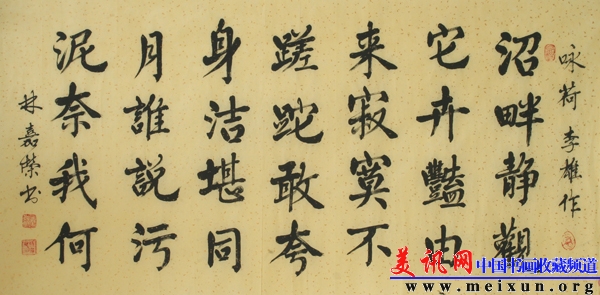 咏荷 李雄作
沼畔静觀
它卉豔由
来寂寞不
蹉跎敢夸
身洁堪同
月誰説污
泥奈我何
林嘉榮书
美讯网
中国书画收藏频道
www.meixun.org